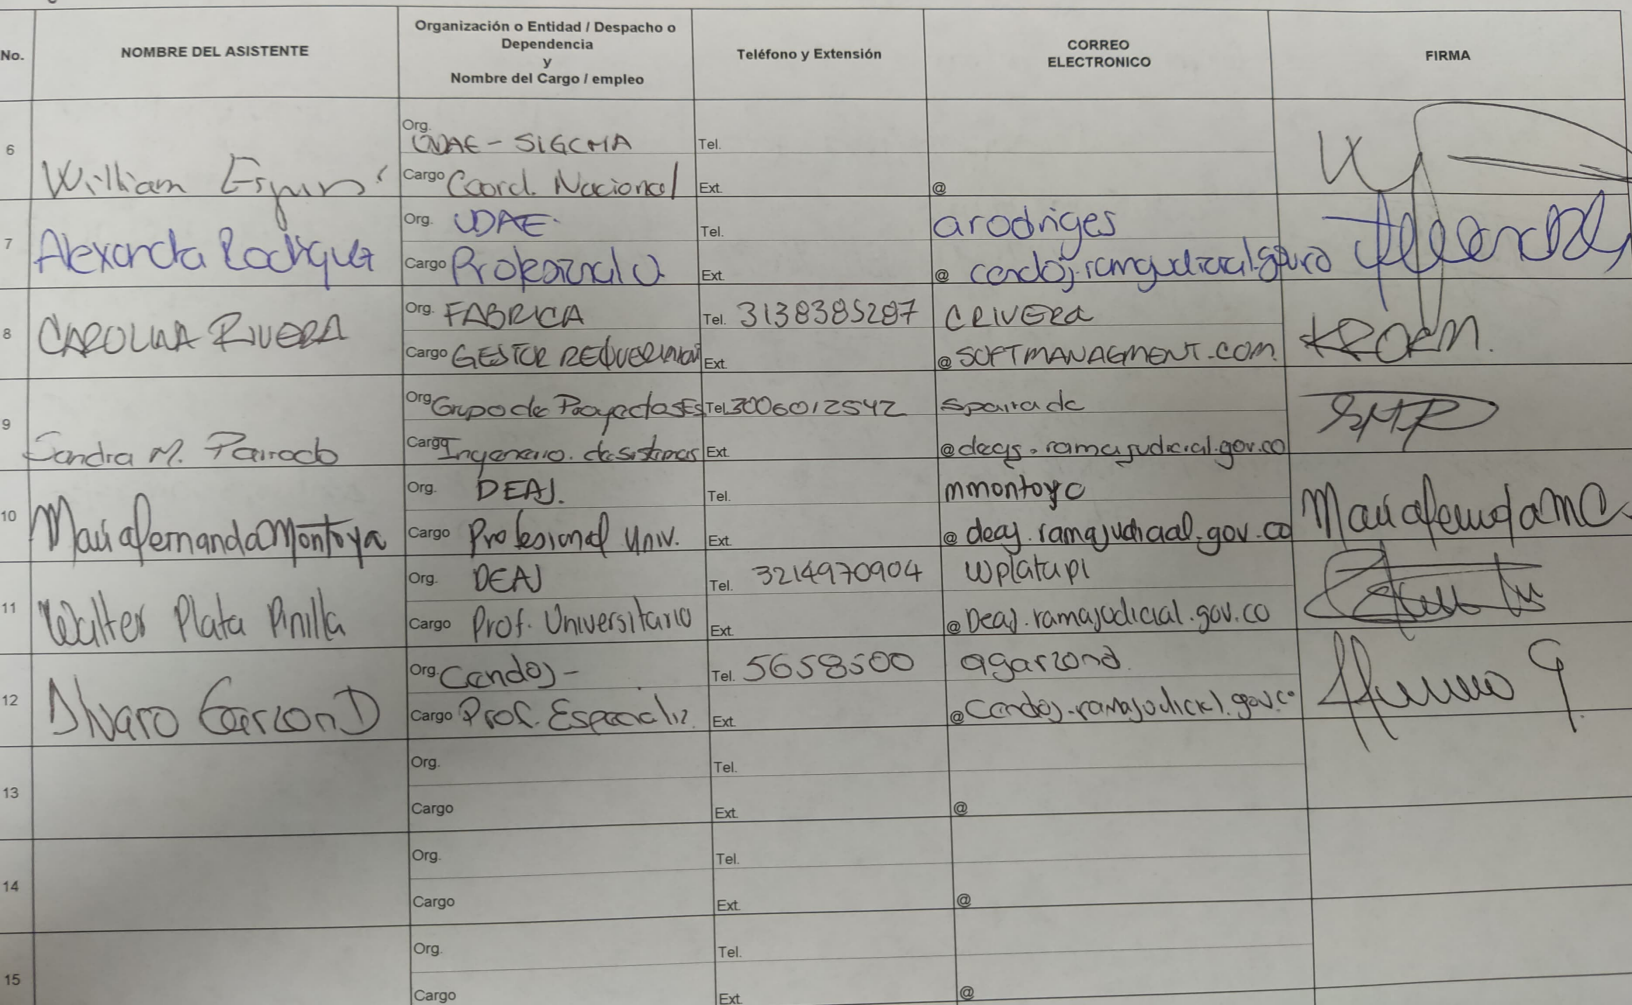 No.
NOMBRE DEL ASISTENTE
Organización o Entidad / Despacho o
Dependencia
y
Nombre del Cargo / empleo
Teléfono y Extensión
CORREO
ELECTRONICO
FIRMA
6
William
Org.
UDAE - SIGCMA
Cargo Coord. Nacional
Tel.
Ext.
@
7
Alexandra Rodriguez
Org. UDAE.
Cargo Profesional U.
Tel.
Ext.
arodriges
@ cendoj.ramajudicial.gov.co
8
CAROLINA RIVERA
Org. FABRICA
Cargo GESTOR
Tel. 3138385287
Ext.
CRIVERA
@SOFTMANAGMENT.COM
9
Sandra M. Parrado
Org. Grupo de Proyectos
Cargo Ingeniero de sistemas
Tel. 3006012542
Ext.
@deaj.ramajudicial.gov.co
10
Maria fernanda Montoya
Org. DEAJ.
Cargo Profesional Univ.
Tel.
Ext.
mmontoyc
@ deaj.ramajudicial.gov.co
Maria fernanda MC
11
Walter Plata Pinilla
Org. DEAJ
Cargo Prof. Universitario
Tel. 3214970904
Ext.
wplatapi
@Deaj.ramajudicial.gov.co
12
Alvaro Garzon D
Org. Cendoj -
Cargo Prof. Especializ.
Tel. 5658500
Ext.
agarzond.
@Cendoj.ramajudicial.gov.co
13
Org.
Cargo
Tel.
Ext.
@
14
Org.
Cargo
Tel.
Ext.
@
15
Org.
Cargo
Tel.
Ext.
@